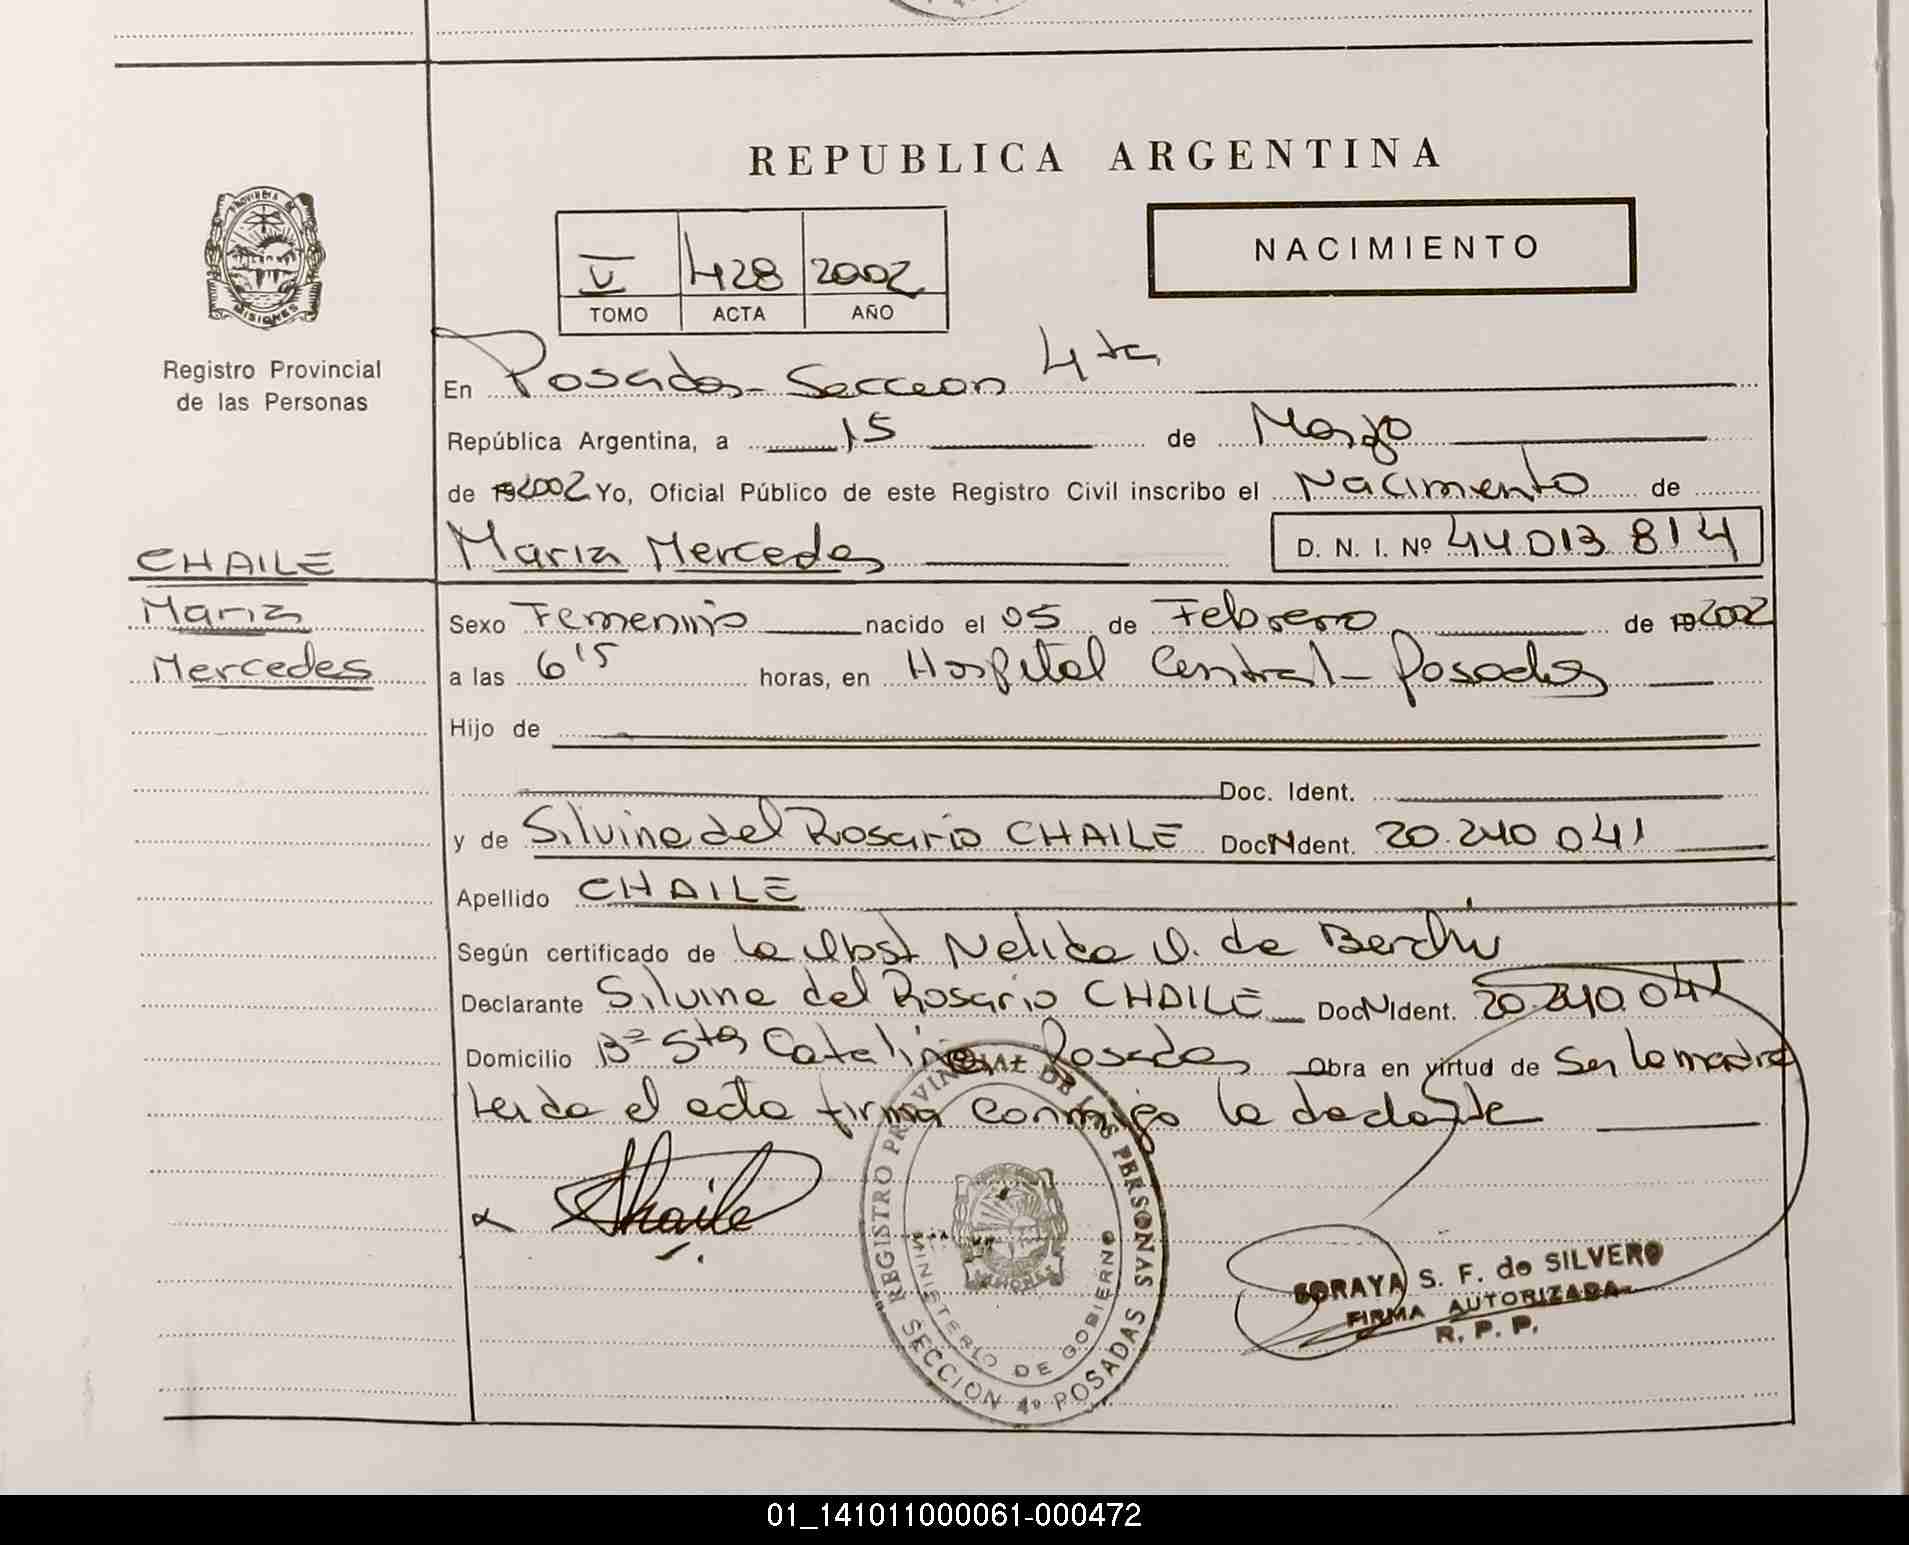 REPUBLICA ARGENTINA
PROVINCIA DE
MISIONES
Registro Provincial
de las Personas
V 428 2002
TOMO ACTA AÑO
NACIMIENTO
En Posadas - Seccion 4ta
República Argentina, a 15 de Marzo
de 192002 Yo, Oficial Público de este Registro Civil inscribo el Nacimiento de
CHAILE
Maria Mercedes
Maria Mercedes D. N. I. Nº 44.013.814
Sexo Femenino nacido el 05 de Febrero de 192002
a las 6'15 horas, en Hospital Central - Posadas
Hijo de
Doc. Ident.
y de Silvina del Rosario CHAILE Doc N Ident. 20.240.041
Apellido CHAILE
Según certificado de la Obst Nelida de
Declarante Silvina del Rosario CHAILE Doc N Ident. 20.240.041
Domicilio Bº Sta Catalina Posadas Obra en virtud de Ser la madre
leida el acta firma conmigo la declarante
Chaile
REGISTRO PROVINCIAL DE LAS PERSONAS
MINISTERIO DE GOBIERNO
SECCION 4º POSADAS
MISIONES
SORAYA S. F. de SILVERO
FIRMA AUTORIZADA
R. P. P.
01_141011000061-000472